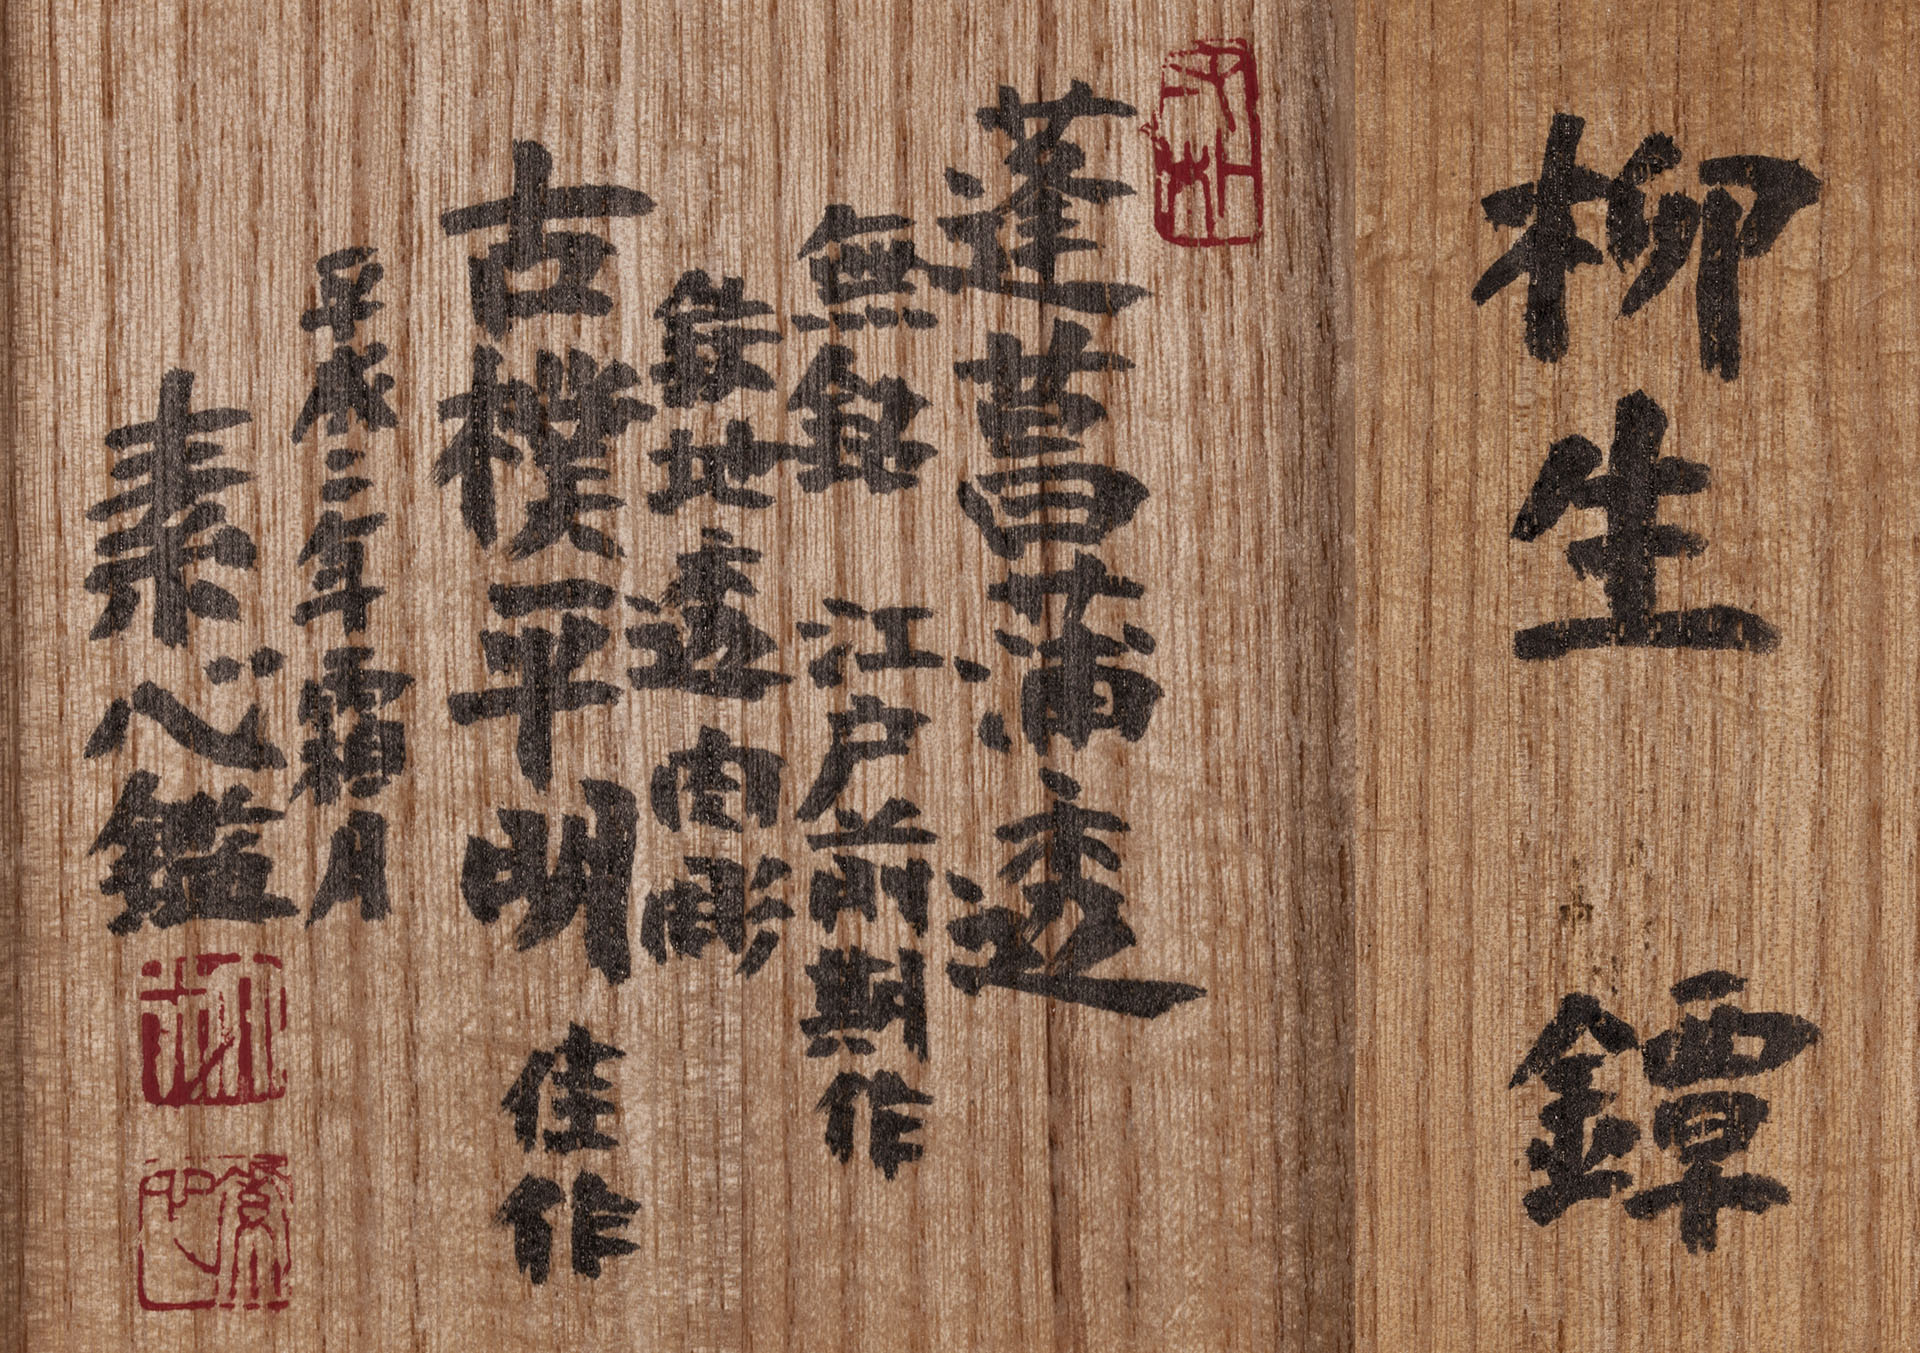 柳生鐔
蓬菖蒲透
無銘 江戸前期作
鉄地透肉彫
古樸平明 佳作
平成二年霜月
素心鑑